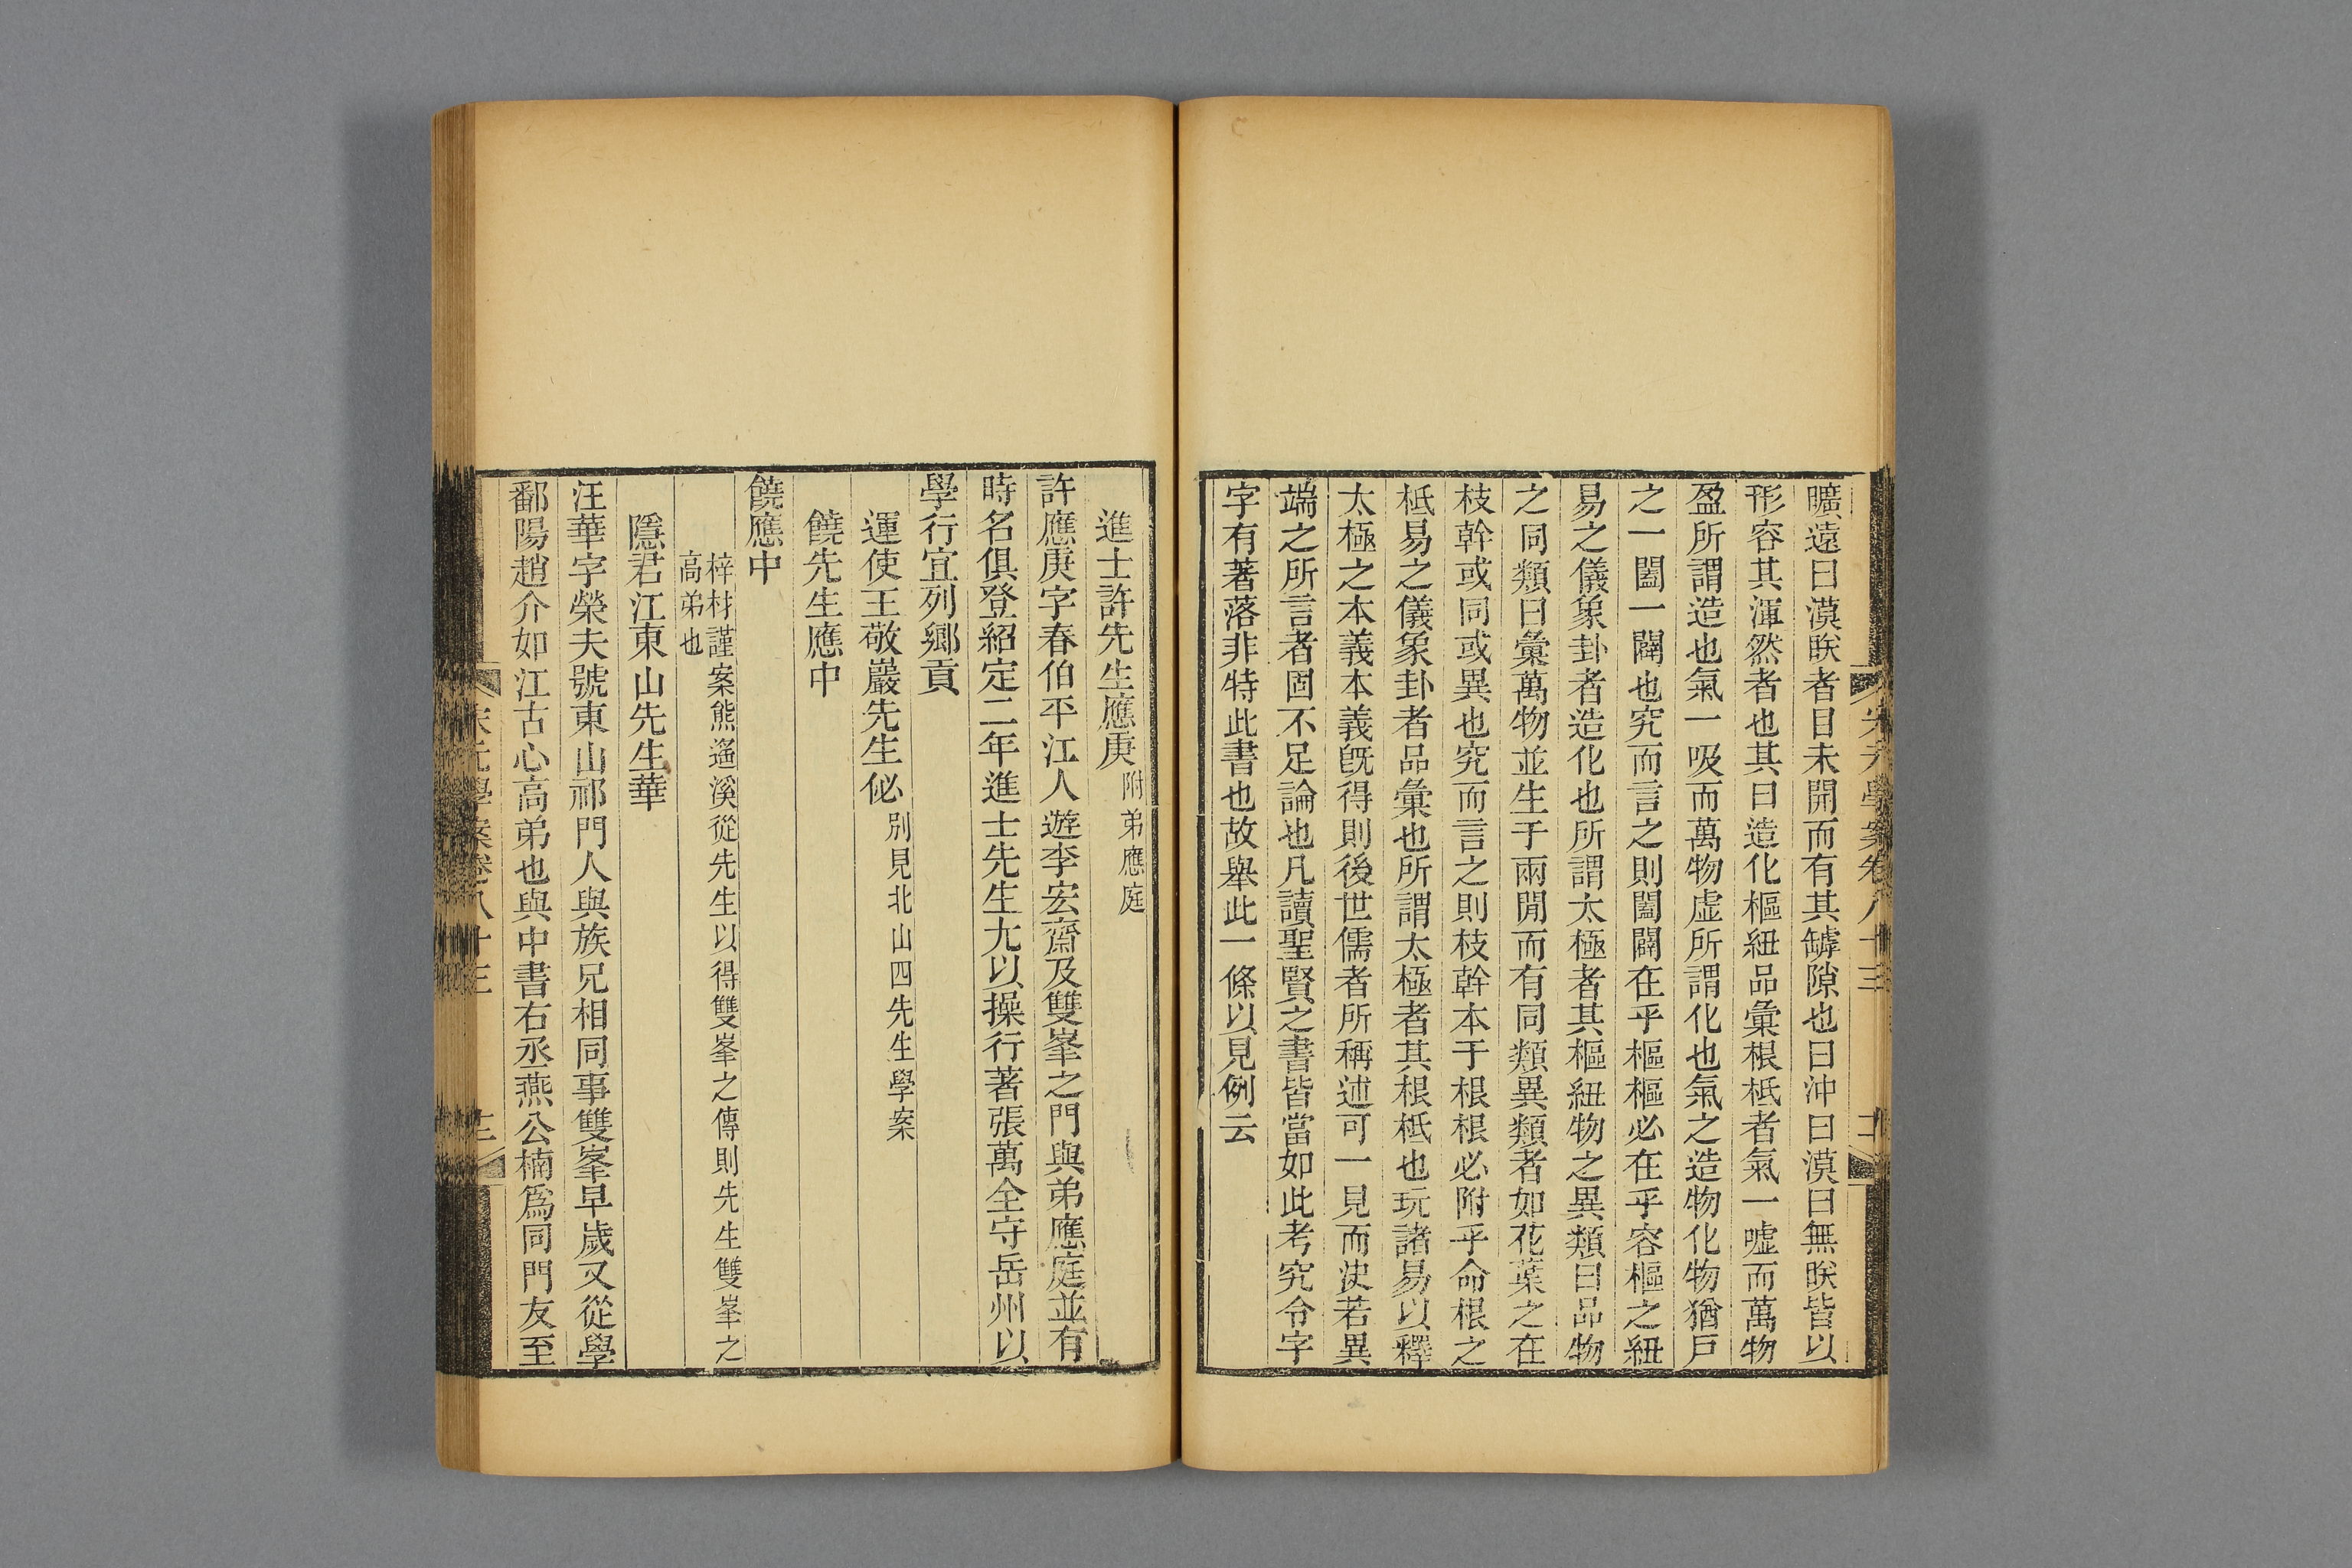 曠遠曰漠眹者目未開而有其罅隙也曰沖曰漠曰無眹皆以
形容其渾然者也其曰造化樞紐品彙根柢者氣一嘘而萬物
盈所謂造也氣一吸而萬物虛所謂化也氣之造物化物猶戸
之一闔一闢也究而言之則闔闢在乎樞樞必在乎容樞之紐
易之儀象卦者造化也所謂太極者其樞紐物之異類曰品物
之同類曰彙萬物並生于兩閒而有同類異類者如花葉之在
枝幹或同或異也究而言之則枝幹本于根根必附乎命根之
柢易之儀象卦者品彙也所謂太極者其根柢也玩諸易以釋
太極之本義本義旣得則後世儒者所稱述可一見而決若異
端之所言者固不足論也凡讀聖賢之書皆當如此考究令字
字有著落非特此書也故舉此一條以見例云
宋元學案卷八十三
進士許先生應庚附弟應庭
許應庚字春伯平江人遊李宏齋及雙峯之門與弟應庭並有
時名俱登紹定二年進士先生尢以操行著張萬全守岳州以
學行宜列鄉貢
運使王敬巖先生佖別見北山四先生學案
饒先生應中
饒應中
梓材謹案熊遙溪從先生以得雙峯之傳則先生雙峯之
高弟也
隱君江東山先生華
汪華字榮夫號東山祁門人與族兄相同事雙峯早歲又從學
鄱陽趙介如江古心高弟也與中書右丞燕公楠爲同門友至
宋元學案卷八十三